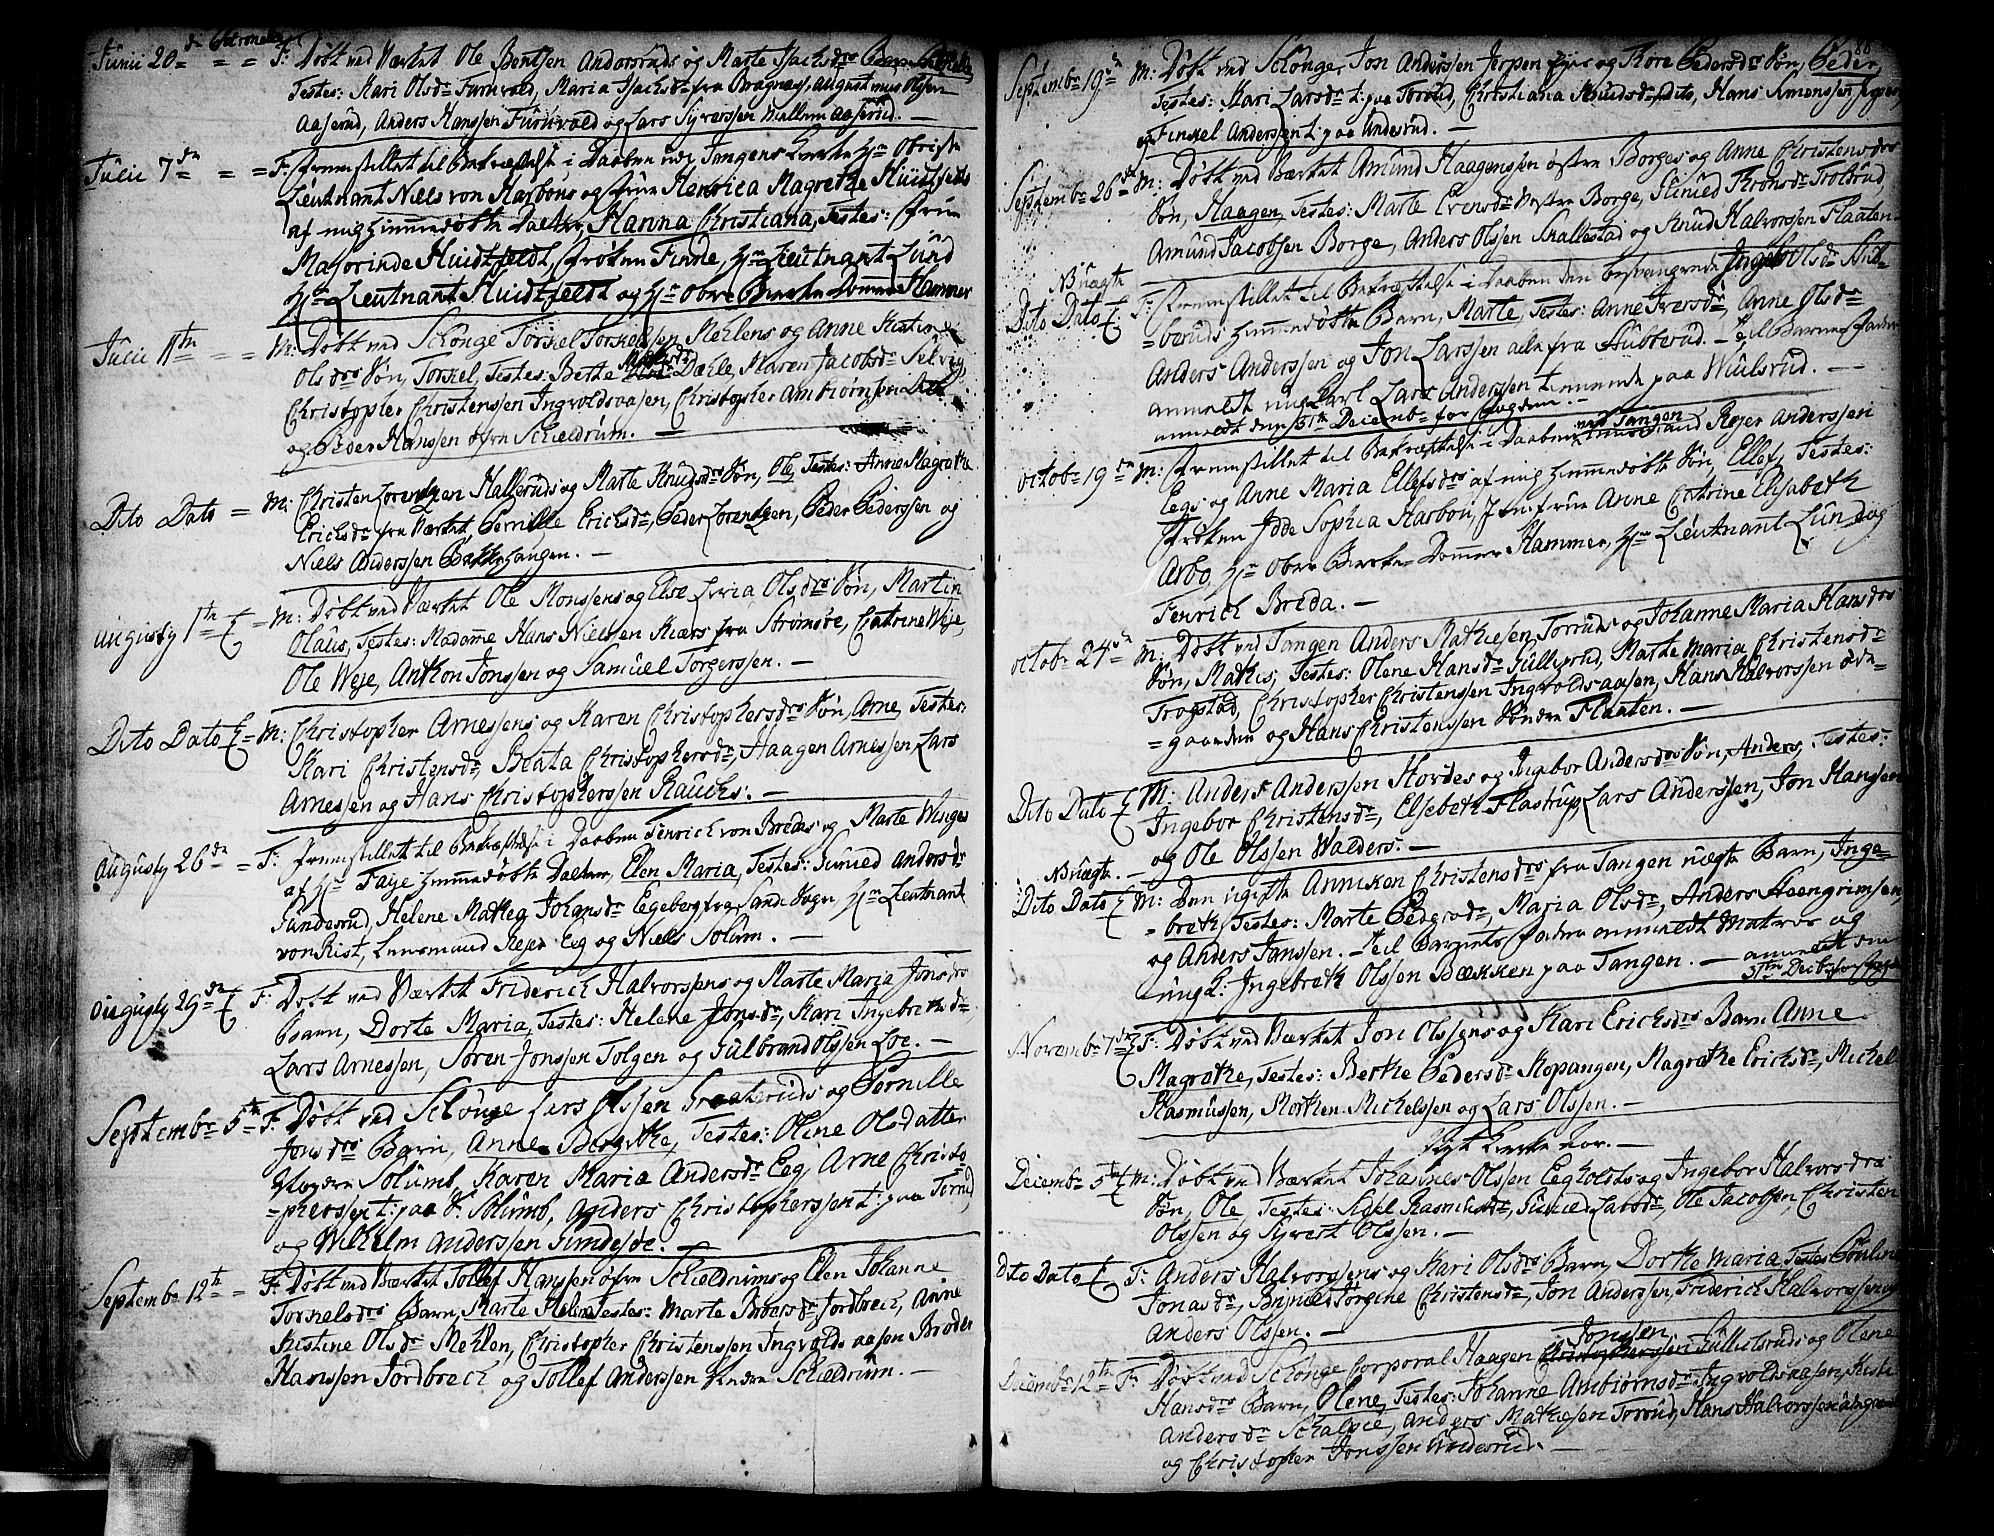 Junii 20de = = F: Døbt ved Værket Ole Bentsen Andorsruds og Marte Isachsdrs Barn
Testes: Kari Olsdr Furuvald, Maria Isachsdr fra Bragnæs, Augustinus Olssen
Aaserud, Anders Hanssen Furuvald og Lars Syverssen Aaserud. —
Julii 7de = = F: fremstillet til Bekræftelse i Daaben udi Tangens Kerke Hr Obriste
Lieutnant Niels von Harbous og Frue Henrica Magrethe Huidtfeldts
af mig hiemmedøbte Datter, Hanna Christiana, Testes: Frue
Majorinde Huidtfeldt, frøken Finde, Hr Lieutnant Lund
Hr Lieutnant Huidtfeldt og Hr Ober Berke Dommer Hammer
Julii 11te — M: Døbt ved Schouge Torkel Torkelsen Mehlens og Anne Kistine
Olsdrs Søn, Torkel, Testes: Berthe Dæhle, Maren Jacobsdr Selvig,
Christopher Christenssen Ingvoldsaasen, Christopher Ambiørnsen
og Peder Hanssen øfre Schieldrum. —
Dito Dato = M: Christen Lorentzen Halleruds og Marte Knudsdrs Søn, Ole, Testes: Anne Magrethe
Ericksdr fra Værket Pernille Ericksdr, Peder Lorentzen, Peder Pederssen og
Niels Anderssen Bakke Tangen. —
Augusty 1te = M: Døbt ved Værket Ole Monssens og Else Maria Olsdrs Søn, Martin
Olaus, Testes: Madame Hans Nielssen Kiærs fra Strømsøe, Catrine Weje,
Ole Weje, Anthon Jonssen og Samuel Torgerssen. —
Dito Dato = M: Christopher Arnessens og Karen Christophersdrs Søn, Arne, Testes:
Kari Christensdr, Beata Christophersdr, Haagen Arnessen, Lars
Arnessen og Hans Christopherssen Rauchs. —
Augusty 26de = F: fremstillet til Bekræftelse i Daaben Fenrich von Bredas og Marte Winges
af Hr Faye hiemmedøbte Datter, Elen Maria, Testes: Gunild Andersdr
Sundesrud, Helene Mathea Johansdr Eegeberg fra Sande Sogn, Hr Lieutnant
von Rist, Lensmand Rejer Eeg og Niels Solum. —
Augusty 29de F: Døbt ved Værket Friderich Halvorssens og Marte Maria Jonsdrs
Barn, Dorte Maria, Testes: Helene Jonsdr, Kari Ingebrethsdr
Lars Arnessen, Søren Jonssen Tolgen og Gulbrand Olssen Loe. —
Septembr 5te F: Døbt ved Schouge Lars Olssen Graateruds og Pernille
Jonsdrs Barn, Anne Bergithe, Testes: Oline Olsdatter
Solumb, Karen Maria Andersdr Eeg, Arne Christo
=phersen t: paa V: Solumb, Anders Christopherssen t: paa Torud,
og Wilhelm Anderssen Sundesøe. —
Septembr 12te = F: Døbt ved Værket Tollef Hanssen øfre Schieldrums og Elen Johanne
Torkelsdrs Barn, Marte Helene Testes: Marte Broersdr Jordbrech, Anne
Kistine Olsdr Mehlen, Christopher Christenssen Ingvoldsaasen Broder
Hanssen Jordbrech og Tollef Anderssen Schieldrum. —
88
Septembr 19de M: Døbt ved Schouge, Jon Anderssen Jerpen Eyer og Thore Pedersdrs Søn, Peder,
Testes: Kari Larsdr t: paa Torrud, Christiana Knudsdr dito, Hans Simenssen
og Tinkel Anderssen t: paa Andesrud. —
Septembr 26de M: Døbt ved Værket Amund Haagenssen østre Borges og Anne Christensdrs
Søn, Haagen, Testes: Marte Evensdr vestre Borge, Gunild Thronsdr Trolsrud,
Amund Jacobsen Borge, Anders Olssen Skallestad og Knud Halvorssen Flaaten
NB uægte
Dito Dato F: fremstillet til Bekræftelse i Daaben den besvangrede Ingeb: Olsdr Stub-
=beruds hiemmedøbte Barn, Marte, Testes: Anne Iversdr, Anne Olsdr
Anders Anderssen og Jon Larssen alle fra Stubberud. — til Barne Fader
anmeldt ung Karl Lars Anderssen tienende paa Wiulsrud. —
anmeldt den 31te Decembr for Fogden. —
ved Tangen
Octobr 19de M: fremstillet til Bekræftelse i Daaben Lensmand Rejer Anderssen
Eegs og Anne Maria Ellefsdrs af mig hiemmedøbte Søn, Ellef, Testes:
frøken Idde Sophia Harbou, Jomfrue Anne Cathrine Elisabeth
Arbo, Hr Ober Berke Dommer Hammer, Hr Lieutnant Lund og
Fenrich Breda. —
Octobr 24de M: Døbt ved Tangen Anders Mathiesen Torruds og Johanne Maria Hansdrs
Søn, Mathis, Testes: Olene Hansdr Gullisrud, Marthe Maria Christensdr
Trogstad, Christopher Christenssen Ingvoldsaasen, Hans Halvorssen øde-
=gaarden og Hans Christenssen Søndre Flaaten. —
Dito Dato M: Anders Anderssen Hordes og Ingebor Andersdrs Søn, Anders, Testes:
Ingebor Christensdr, Elsebeth Flastrup, Lars Anderssen, Jon Hanssen
og Ole Olssen Walders. —
NB uægte. —
Dito Dato M: Den ugifte Anniken Christensdrs fra Tangen uægte Barn, Inge-
=breth Testes: Marte Pedersdr, Maria Olsdr, Anders Steengrimsen,
og Anders Janssen. — til Barnets fader anmeldt Matros og
ung K: Ingebreth Olssen Bækken paa Tangen. — anmeldt den
31te Decbr for Fogden
Novembr 7de F: Døbt ved Værket Jon Olssens og Kari Ericksdrs Barn Anne
Magrethe, Testes: Berthe Pedersdr Kopangen, Magrethe Ericksdr, Michel
Rasmussen, Morthen Michelssen og Lars Olssen. —
Decembr 5te M: Døbt ved Værket Johannes Olssen Eegholts og Ingebor Halvorsdrs
Søn, Ole, Testes: Sidsel Rasmusdr, Gunild Larsdr, Ole Jacobssen, Christen
Olssen og Syvert Olssen. —
Dito Dato F: Anders Halvorssens og Kari Olsdrs Barn, Dorthe Maria, Testes Pouline
Jonasdr, Torgine Christensdr, Jon Anderssen, Friderich Halvorssen og
Anders Olssen. —
Jonssen
Decembr 12te F: Døbt ved Schouge Corporal Haagen Christopherssen Gullisruds og Olene
Hansdrs Barn, Olene, Testes: Johanne Ambiørnsdr Ingvoldsaasen, Kistine
Andersdr Schalvie, Anders Mathiesen Torrud, Hans Halvorssen
og Christopher Jonssen Undesrud. —